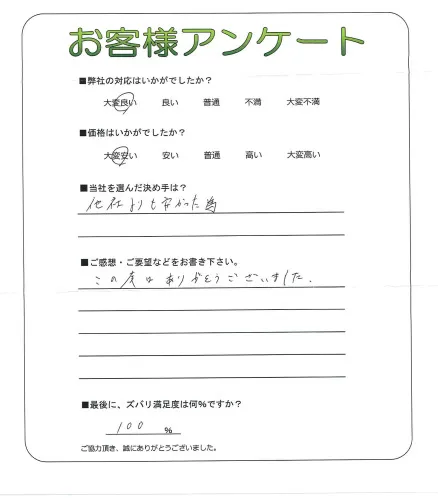 お客様アンケート
■弊社の対応はいかがでしたか？
大変良い 良い 普通 不満 大変不満
■価格はいかがでしたか？
大変安い 安い 普通 高い 大変高い
■当社を選んだ決め手は？
他社よりも安かった為
■ご感想・ご要望などをお書き下さい。
この度はありがとうございました.
■最後に、ズバリ満足度は何%ですか？
100 %
ご協力頂き、誠にありがとうございました。